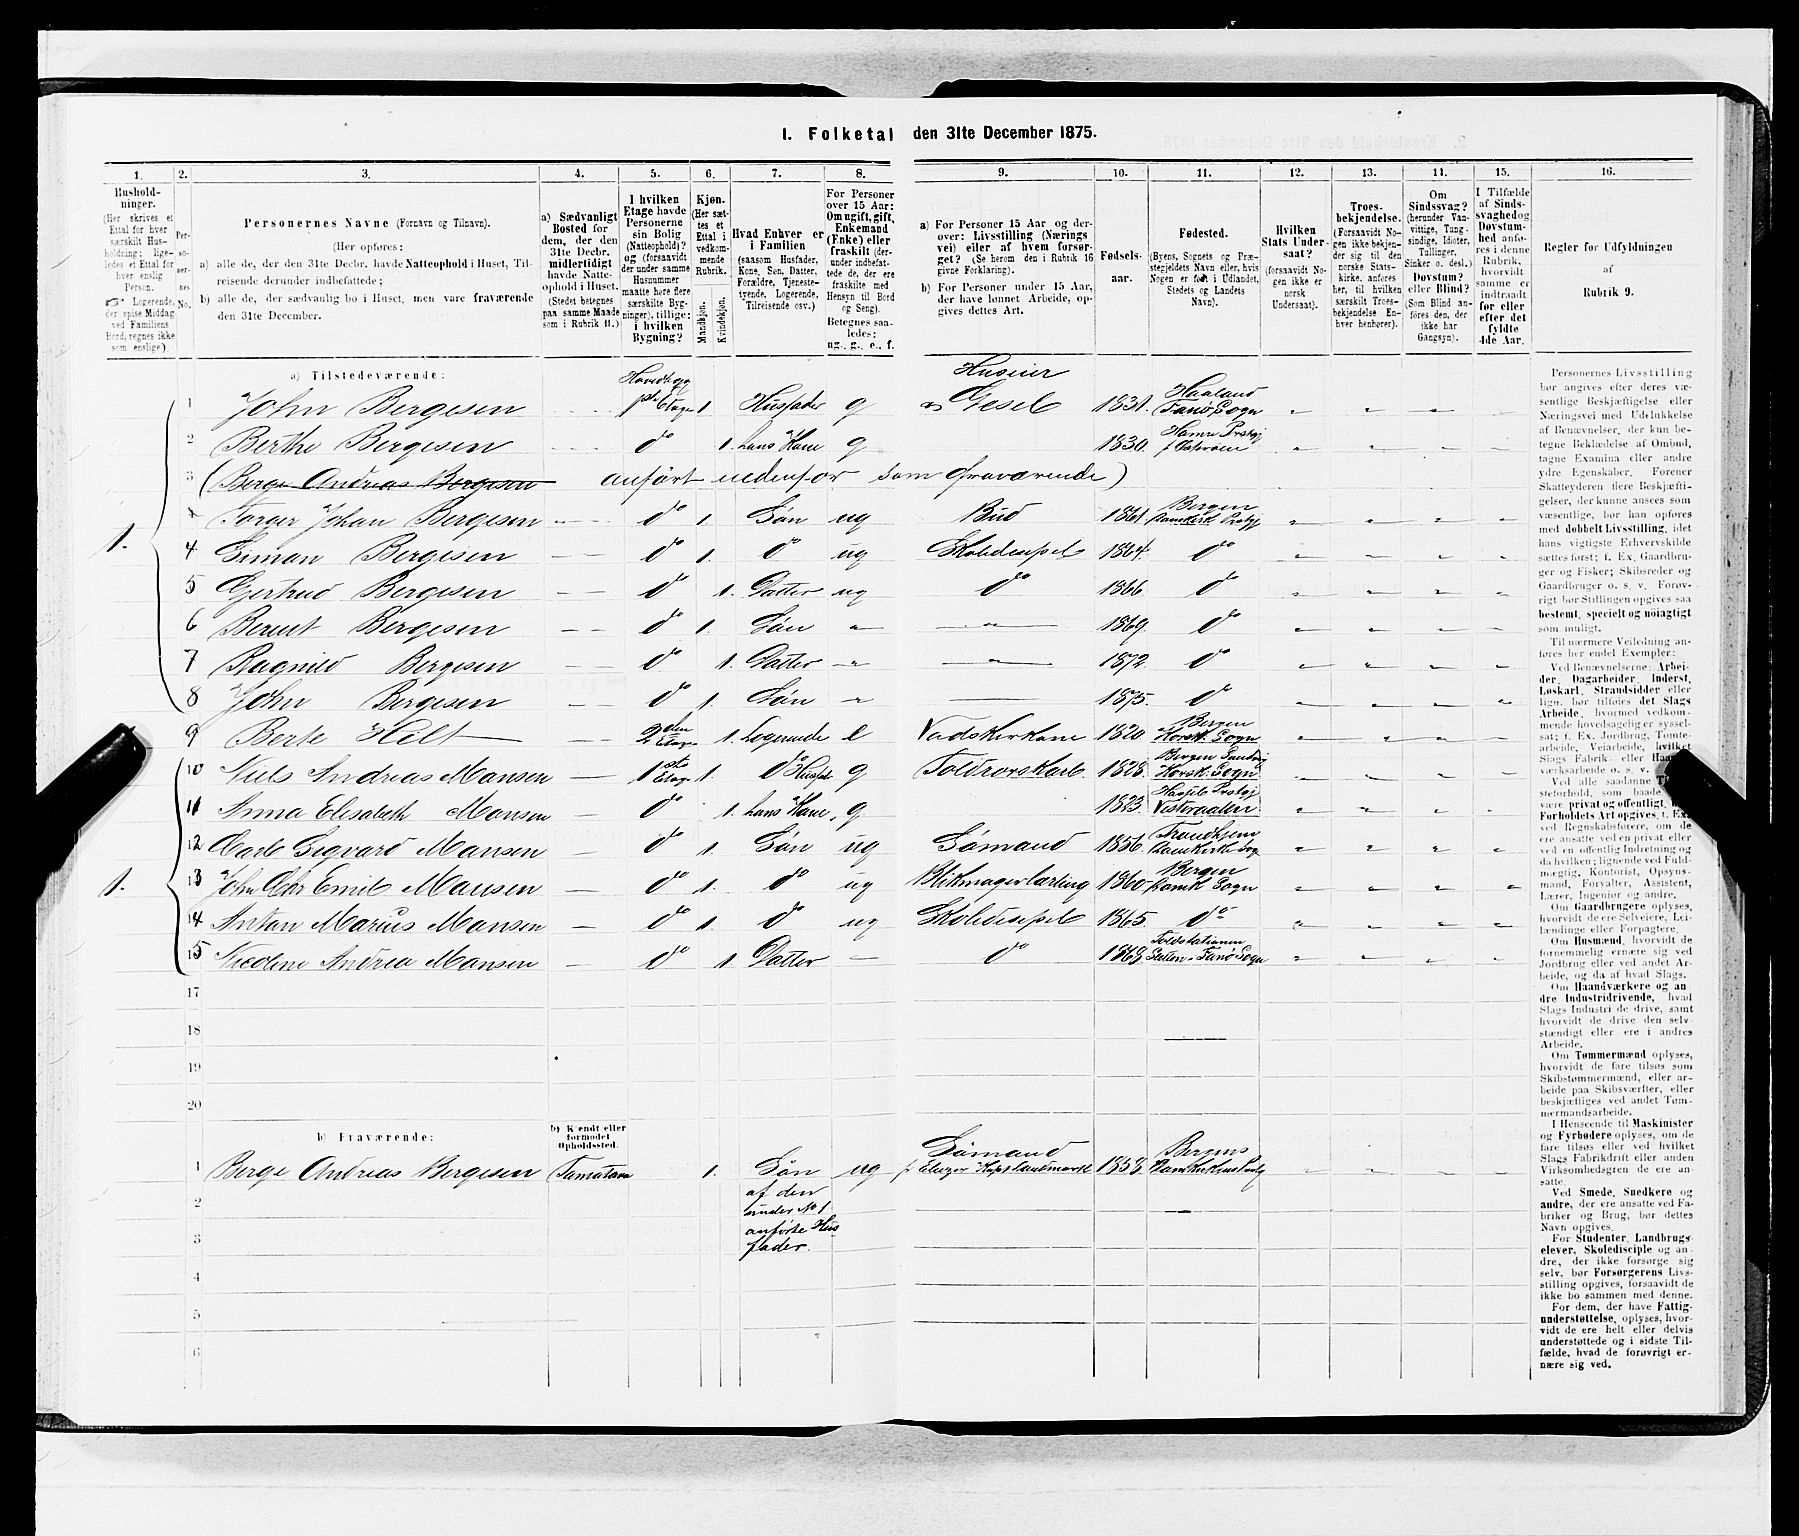 1. Folketal den 31te December 1875.
1. 2. 3. 4. 5. 6. 7. 8. 9. 10. 11. 12. 13. 14. 15. 16.
Hushold-
ninger.
(Her skrives et
Ettal for hver
særskilt Hus-
holdning; lige-
ledes et Ettal for
hver enslig
Person.
Logerende,
der spise Middag
ved Familiens
Bord, regnes ikke
som enslige).
Per-
so-
ner-
nes
No.
Personernes Navne (Fornavn og Tilnavn).
(Her opføres:
a) alle de, der den 31te Decbr. havde Natteophold i Huset, Til-
reisende derunder indbefattede;
b) alle de, der sædvanlig bo i Huset, men vare fraværende
den 31te December.
a) Sædvanligt
Bosted for
dem, der den
31te Decbr.
midlertidigt
havde Natte-
ophold i Huset.
(Stedet betegnes
paa samme Maade
som i Rubrik 11.)
I hvilken
Etage havde
Personerne
sin Bolig
(Natteophold)?
og (forsaavidt
der under samme
Husnummer
maatte høre flere
særskilte Byg-
ninger), tillige:
i hvilken
Bygning?
Kjøn.
(Her sæt-
tes et
Ettal i
vedkom-
mende
Rubrik.
Mandkjøn.
Kvindekjøn.
Hvad Enhver er
i Familien
(saasom Husfader,
Kone, Søn, Datter,
Forældre, Tjeneste-
tyende, Logerende,
Tilreisende osv.)
For Personer
over 15 Aar:
Om ugift, gift,
Enkemand
(Enke) eller
fraskilt (der-
under indbefat-
tede de, der ere
fraskilte med
Hensyn til Bord
og Seng).
Betegnes saa-
ledes:
ug., g., e., f.
a) For Personer 15 Aar og der-
over: Livsstilling (Nærings
vei) eller af hvem forsør-
get? (Se herom den i Rubrik 16
givne Forklaring).
b) For Personer under 15 Aar,
der have lønnet Arbeide, op-
gives dettes Art.
Fødsels-
aar.
Fødested.
(Byens, Sognets og Præ-
stegjeldets Navn eller, hvis
Nogen er født i Udlandet,
Stedets og Landets
Navn).
Hvilken
Stats Under-
saat?
(forsaavidt No-
gen ikke er
norsk
Undersaat).
Troes-
bekjendelse.
(Forsaavidt No-
gen ikke bekjen-
der sig til den
norske Stats-
kirke, anføres
her, til hvilken
særskilt Troes-
bekjendelse En-
hver henhører).
Om
Sindssvag?
(herunder Van-
vittige, Tung-
sindige, Idioter,
Tullinger,
Sinker o. desl.)
Døvstum?
eller Blind?
(Som Blind an-
føres den, der
ikke har
Gangsyn).
I Tilfælde
af Sinds-
svaghed og
Døvstum-
hed anfø-
res i denne
Rubrik,
hvorvidt
samme er
indtraadt
før eller
efter det
fyldte
4de Aar.
Regler for Udfyldningen
af
Rubrik 9.
a) Tilstedeværende:
1 John Bergesen 1ste Etage 1 Husfader g Huseier Gesel 1831 Haaland Fanø Sogn
2 Berthe Bergesen do 1. hans Kone g 1830 Hamre Prstgj
3 (Berge Andreas Bergesen anført nedenfor som fraværende)
1. Torger Johan Bergesen do 1. Søn ug Bud 1861 Bergen Domkirk Prstgj
4 Siman Bergesen do 1. do ug Skoledisipel 1864. do
5 Gertrud Bergesen do 1. Datter ug do 1866 do
6 Bernt Bergesen do 1. Søn 1869. do
7 Ragnild Bergesen do 1. Datter 1872. do
8 John Bergesen do 1. Søn 1875. do
9 Berte Helt 2den Etage 1. Logerende e Vadskerkone 1820 Bergen Korsk. Sogn
10 Niels Andreas Mansen 1ste Etage 1. do Husfd g Toldrorskarl 1828. Bergen Korsk. Sogn
11 Anna Elisabeth Mansen do 1. hans Kone, g 1823. Hassels Prstgj Vesteraalen
12 Carl Sigvard Mansen do 1. Søn ug Sømand 1856. Trondhjem Domkirk Sogn
1. 13 John Chr Emil Mansen do 1. do ug Blikmagerlærling 1860. Bergen Domk. Sogn
14 Antan Marius Mansen do 1. do ug Skoledisipel 1865. do
15 Nicoline Andrea Mansen do 1. Datter do 1868. Toldstationen Fanø Sogn
17
18
19
20
b) Fraværende:
b) Kjendt eller
formodet
Opholdssted.
1 Berge Andreas Bergesen 1. Søn ug Sømand 1858. Bergens Domkirkens Prstgj
af den
under No 1
anførte Hus
fader.
2
3
4
5
6
Personernes Livsstilling
bør angives efter deres væ-
sentlige Beskjæftigelse eller
Næringsvei med Udelukkelse
af Benævnelser, der kun be-
tegne Beklædelse af Ombud,
tagne Examina eller andre
ydre Egenskaber. Forener
Skatteyderen flere Beskjæfti-
gelser, der kunne ansees som
væsentlige, bør han opføres
med dobbelt Livsstilling, idet
hans vigtigste Erhvervskilde
sættes først; f. Ex. Gaardbru-
ger og Fisker; Skibsreder og
Gaardbruger o. s. v. Forøv-
rigt bør Stillingen opgives saa
bestemt, specielt og nøiagtigt
som muligt.
Til nærmere Veiledning an-
føres her endel Exempler:
Ved Benævnelserne: Arbei-
der, Dagarbeider, Inderst,
Løskarl, Strandsidder eller
lign. bør tilføies det Slags
Arbeide, hvormed vedkom-
mende hovedsagelig er syssel-
sat; f. Ex. Jordbrug, Tomte-
arbeide, Veiarbeide, hvilket
Slags Fabrik- eller Haand-
værksarbeide o. s. v.
Ved alle saadanne
steforhold, som baade
være privat og offentligt, bør
Forholdets Art opgives, f. Ex.
ved Regnskabsførere, om de
ere ansatte ved en privat eller
ved en offentlig Indretning og
da hvilken; lignende ved Fuld-
mægtig, Kontorist, Opsyns-
mand, Forvalter, Assistent,
Lærer, Ingeniør og andre.
Om Gaardbrugere oplyses,
hvorvidt de ere Selveiere, Lei-
lændinge eller Forpagtere.
Om Husmænd, hvorvidt de
fornemmelig ernære sig ved
Jordbrug eller ved andet Ar-
beide, og da af hvad Slags.
Om Haandværkere og an-
dre Industridrivende, hvad
Slags Industri de drive, samt
hvorvidt de drive den selv-
stændigt eller ere i andres
Arbeide.
Om Tømmermænd oplyses,
hvorvidt de fare tilsøs som
Skibstømmermænd, eller ar-
beide paa Skibsværfter, eller
beskjæftiges ved andet Tøm-
mermandsarbeide.
I Henseende til Maskinister
og Fyrbødere oplyses, om de
fare tilsøs eller ved hvilket
Slags Fabrikdrift eller anden
Virksomhedsgren de ere an-
satte.
Ved Smede, Snedkere og
andre, der ere ansatte ved Fa-
briker og Brug, bør dettes
Navn opgives.
For Studenter, Landbrugs-
elever, Skoledisciple og an-
dre, der ikke forsørge sig
selv, bør Forsørgerens Livs-
stilling opgives, forsaavidt de
ikke bo sammen med denne.
For dem, der have Fattig-
understøttelse, oplyses, hvor-
vidt de ere helt eller delvis
understøttede og i sidste Til-
fælde, hvad de forøvrigt er-
nære sig ved.